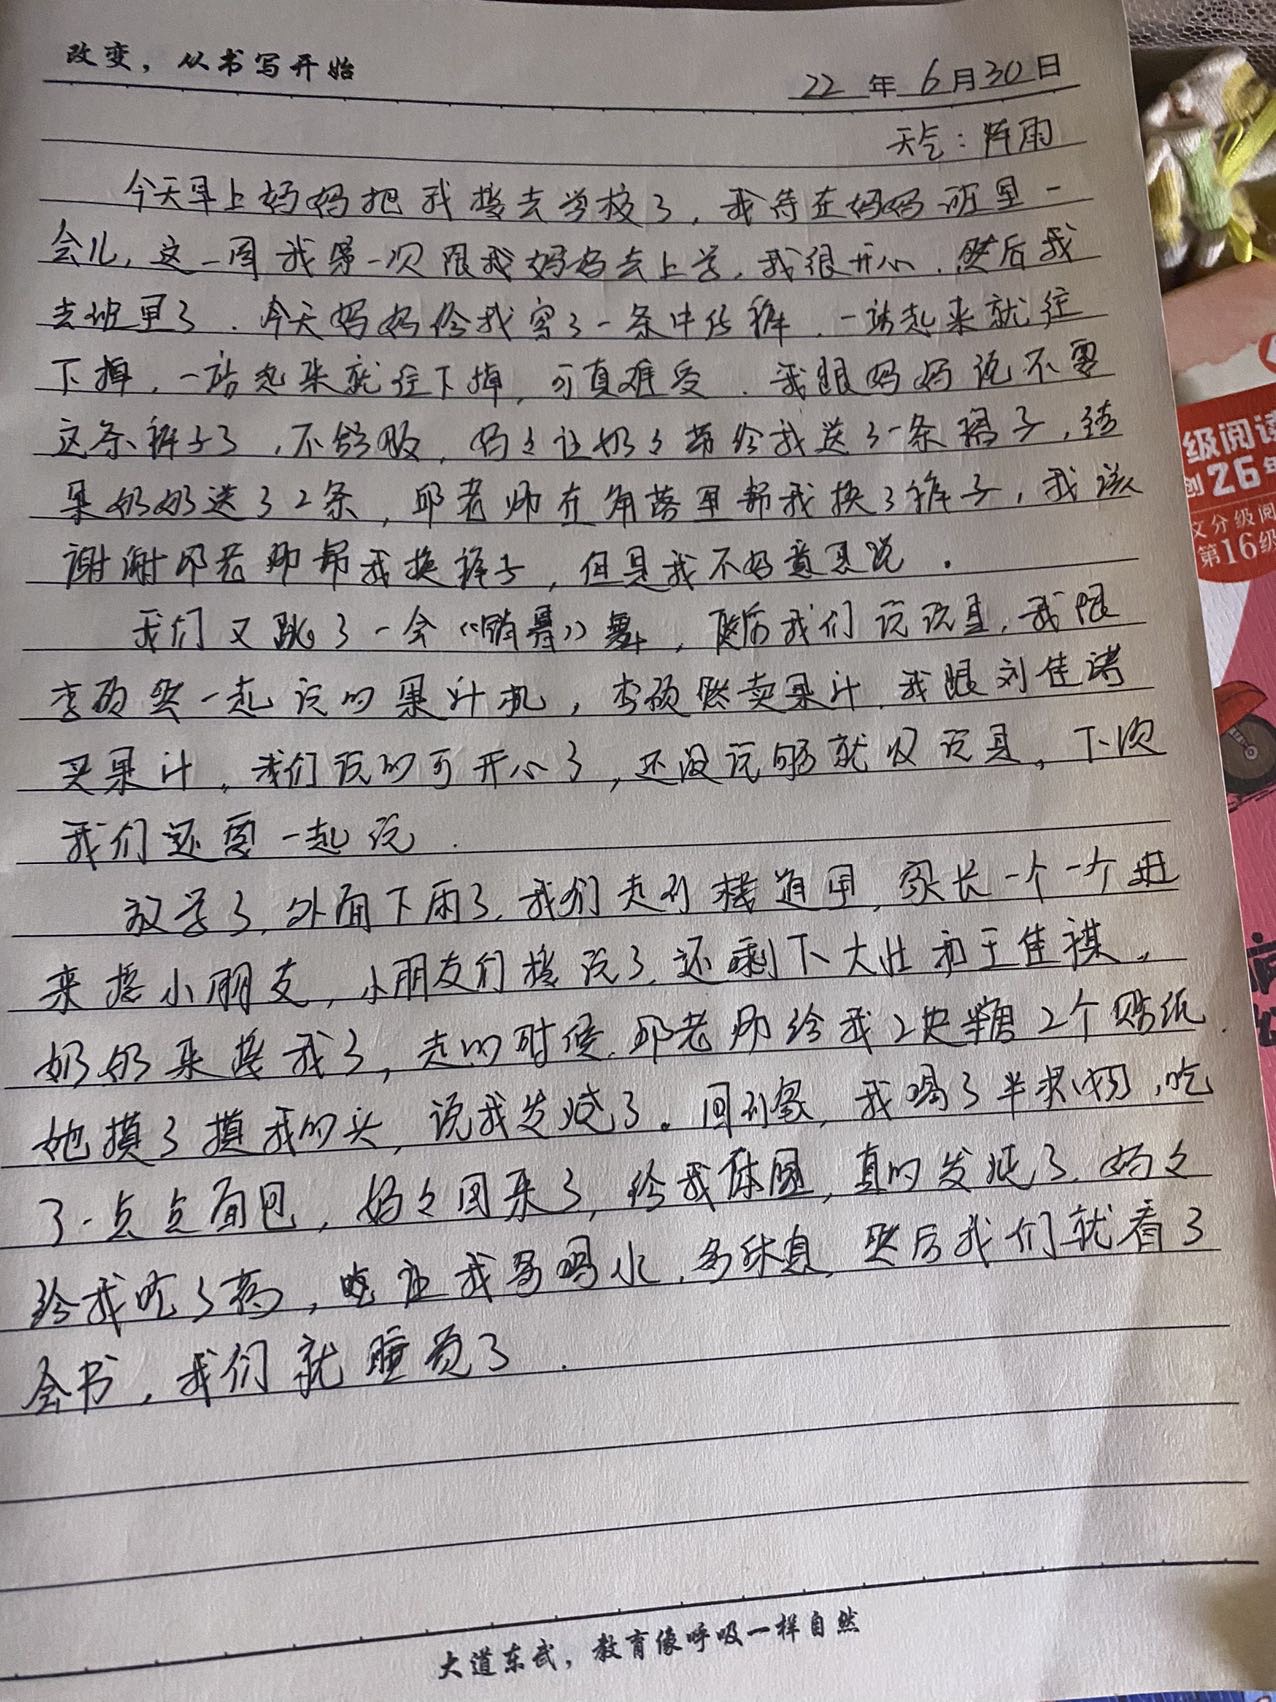 改变，从书写开始
22年6月30日
天气：阵雨
今天早上妈妈把我接去学校了，我待在妈妈班里一
会儿，这一周我第一次跟我妈妈去上学，我很开心．然后我
去班里了．今天妈妈给我穿了一条中传裤．一站起来就往
下掉，一站起来就往下掉，可真难受．我跟妈妈说不要
这条裤子了，不舒服，妈々让奶々带给我送了一条裙子，结
果奶奶送了2条，邱老师在角落里帮我换了裤子，我该
谢谢邱老师帮我换裤子，但是我不好意思说．
我们又跳了一会《》舞，然后我们玩玩具，我跟
李硕然一起玩的果汁机，李硕然卖果汁．我跟刘佳诺
买果汁，我们玩的可开心了，还没玩够就收玩具。下次
我们还要一起玩．
放学了，外面下雨了，我们走到楼道里，家长一个一个进
来接小朋友，小朋友们接完了．还剩下大壮和王佳祺。
奶奶来接我了，走的时候，邱老师给我2块糖2个贴纸．
她摸了摸我的头，说我发烧了。回到家，我喝了半奶，吃
了一点点面包，妈々回来了，给我体温，真的发烧了．妈々
给我吃了药，让我多喝水，多休息，然后我们就看了
会书，我们就睡觉了．
大道东武，教育像呼吸一样自然
级阅读
创26年
文分级阅
第16级